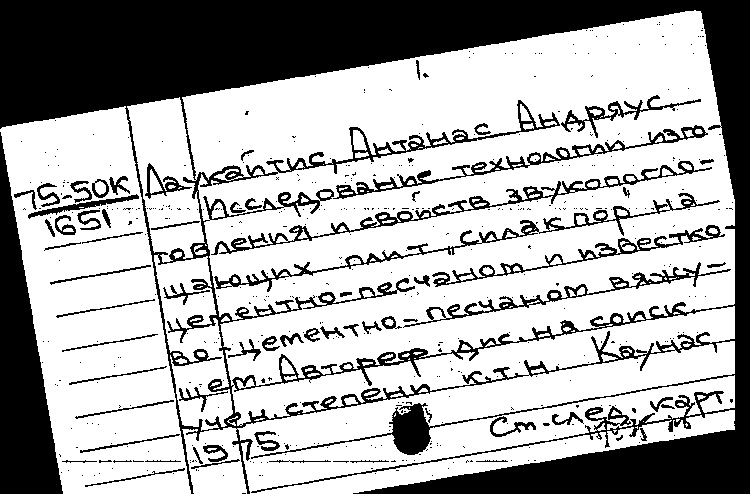 1.
75-50К
1651.
Лаукайтис, Антанас Андряус.
Исследование технологии изго-
товления и свойств звукопогло-
щающих плит „силакпор" на
цементно-песчаном и известко-
во-цементно-песчаном вяжу-
щем.. Автореф. дис. на соиск.
учен. степени к.т.н. Каунас,
1975.
См. след. карт.